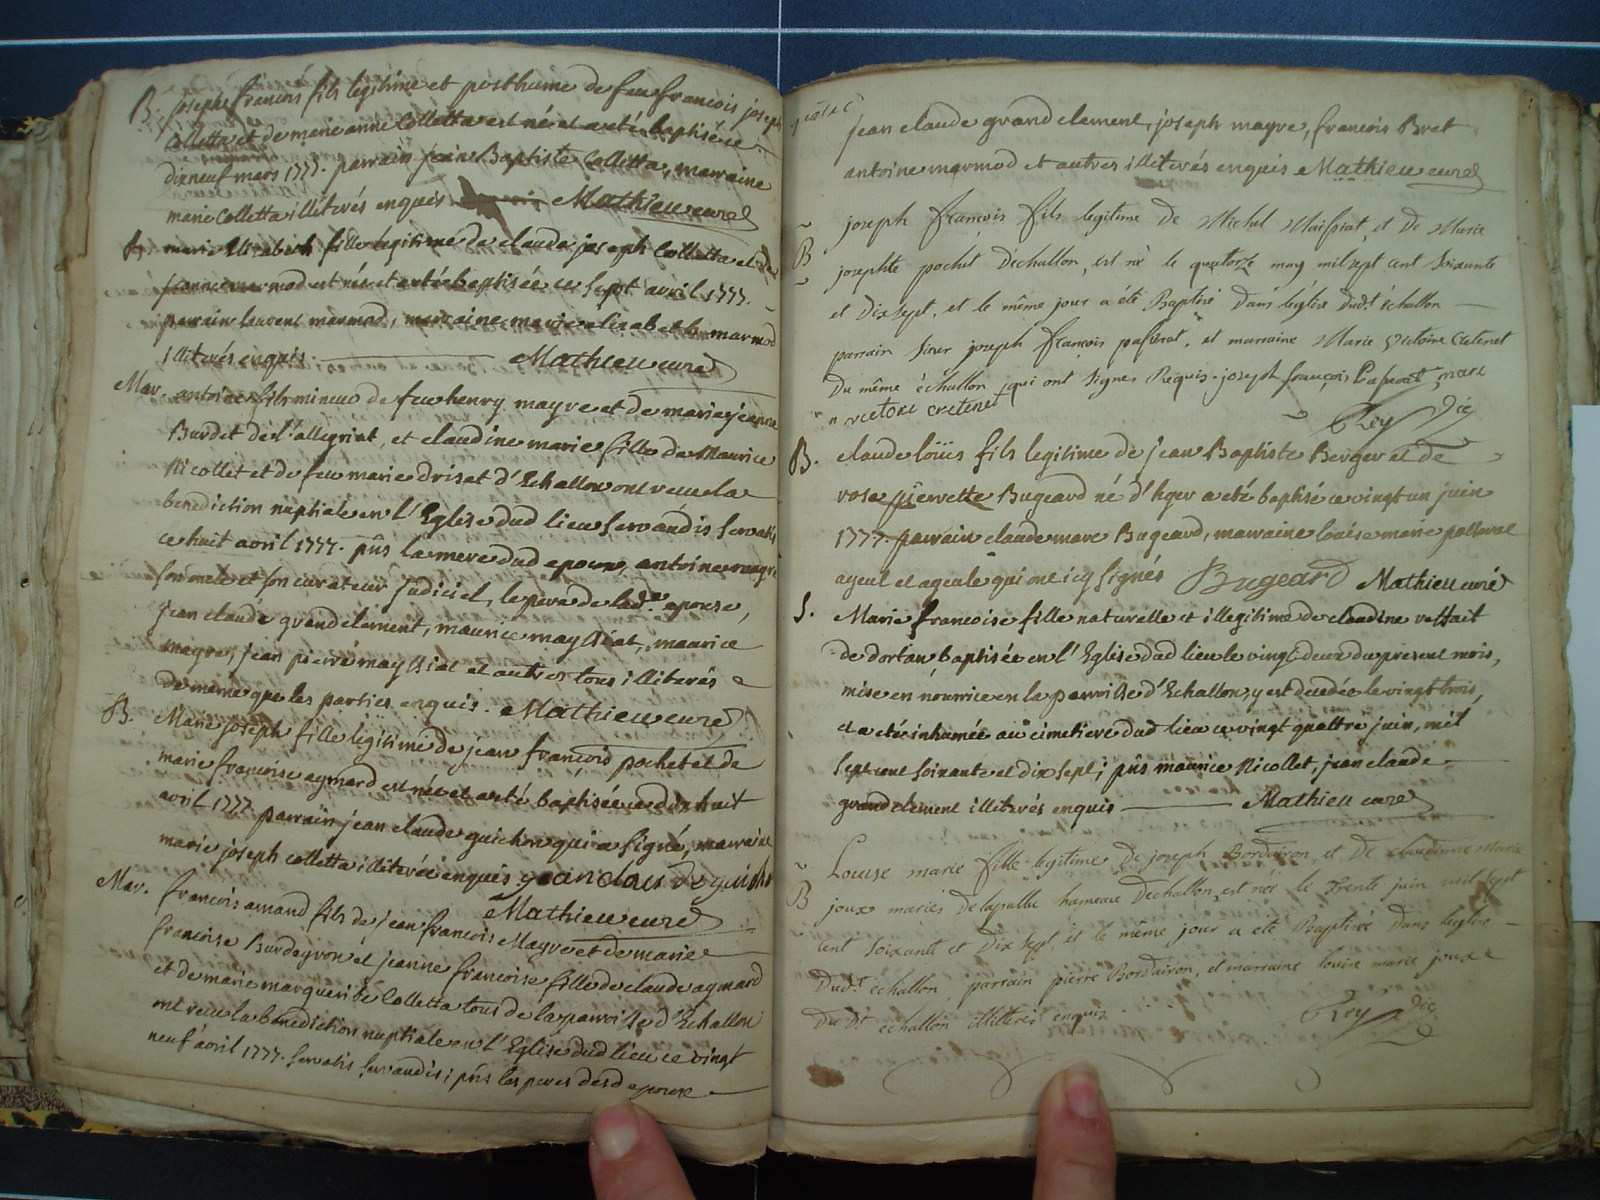 B. joseph francois fils legitime et posthume de feu francois joseph
Colletta et de marie anne Colletta est né et a eté baptisé ce
dixneuf mars 1777. parrain jean Baptiste Colletta, marraine
marie Colletta illiterés enquis Mathieu curé
B. marie Elizabeth fille legitime de claude joseph Colletta et de
jeanne marmod est née et a eté baptisée ce sept avril 1777.
parrain laurent marmod, marraine marie elizabeth marmod
illiterés enquis. Mathieu curé
Mar. antoine fils mineur de feu henry mayre et de marie jeanne
Burdet de l'allegriat, et claudine marie fille de Maurice
Nicollet et de feu marie driset d'Echallon ont receu la
benediction nuptiale en l'Eglise dud lieu servandis servatis
ce huit avril 1777. pñs la mere dud epoux, antoine mayre
son oncle et son curateur judiciel, le pere de lad.e epouse,
jean claude grand clement, maurice mayssiat, maurice
mayre, jean pierre mayssiat et autres tous illiterés
de meme que les parties enquis. Mathieu curé
B. Marie joseph fille legitime de jean françois pochet et de
marie francoise aymard est née et a eté baptisée ce dixhuit
avril 1777 parrain jean claude guichon qui a signé, marraine
marie joseph colletta illiterée enquis jean claude guichon
Mathieu curé
Mar. francois amand fils de jean francois Mayre et de marie
francoise Burdeyron et jeanne francoise fille de claude aymard
et de marie marguerite Colletta tous de la parroisse d'Echallon
ont receu la benediction nuptiale en l'Eglise dud lieu ce vingt
neuf avril 1777. servatis servandis; pñs les peres desd epoux
jean claude grand clement, joseph mayre, francois Bret
antoine marmod et autres illiterés enquis Mathieu curé
B joseph françois fils legitime de Michel Maissiat, et de Marie
josephte pochet dechallon, est né le quatorze may mil sept cent soixante
et dix sept, et le même jour a été Baptisé dans leglise dud.t échallon
parrain sieur joseph françois passerat, et marraine Marie victoire Cretenet
du même échallon, qui ont signes Requis. joseph françois Passerat marie
victoire cretenet
Rey Vic
B. claude loüis fils legitime de jean Baptiste Berger et de
rose pierrette Bugeard né d'hyer a eté baptisé ce vingt un juin
1777. parrain claude marc Bugeard, marraine louise marie palleval
ayeul et ayeule qui ont icy signés Bugeard Mathieu curé
S. Marie francoise fille naturelle et illegitime de claudine
de dortan baptisée en l'Eglise dud lieu le vingt deux du present mois,
mise en nourrice en la parroisse d'Echallon, y est decedée le vingt trois,
et a eté inhumée au cimetiere dud lieu ce vingt quattre juin, mil
sept cent soixante et dix sept; pñs maurice Nicollet, jean claude
grand clement illiterés enquis Mathieu curé
B Louise marie fille legitime de joseph Bordairon, et de claudinne Marie
joux mariés de lapalle hameau dechallon, est née le trente juin mil sept
cent soixante et dix sept, et le même jour a eté Baptisée dans leglise
dud.t échallon, parrain pierre Bordairon, et marraine louise marie joux
du dit échallon illitterés enquis. Rey Vic